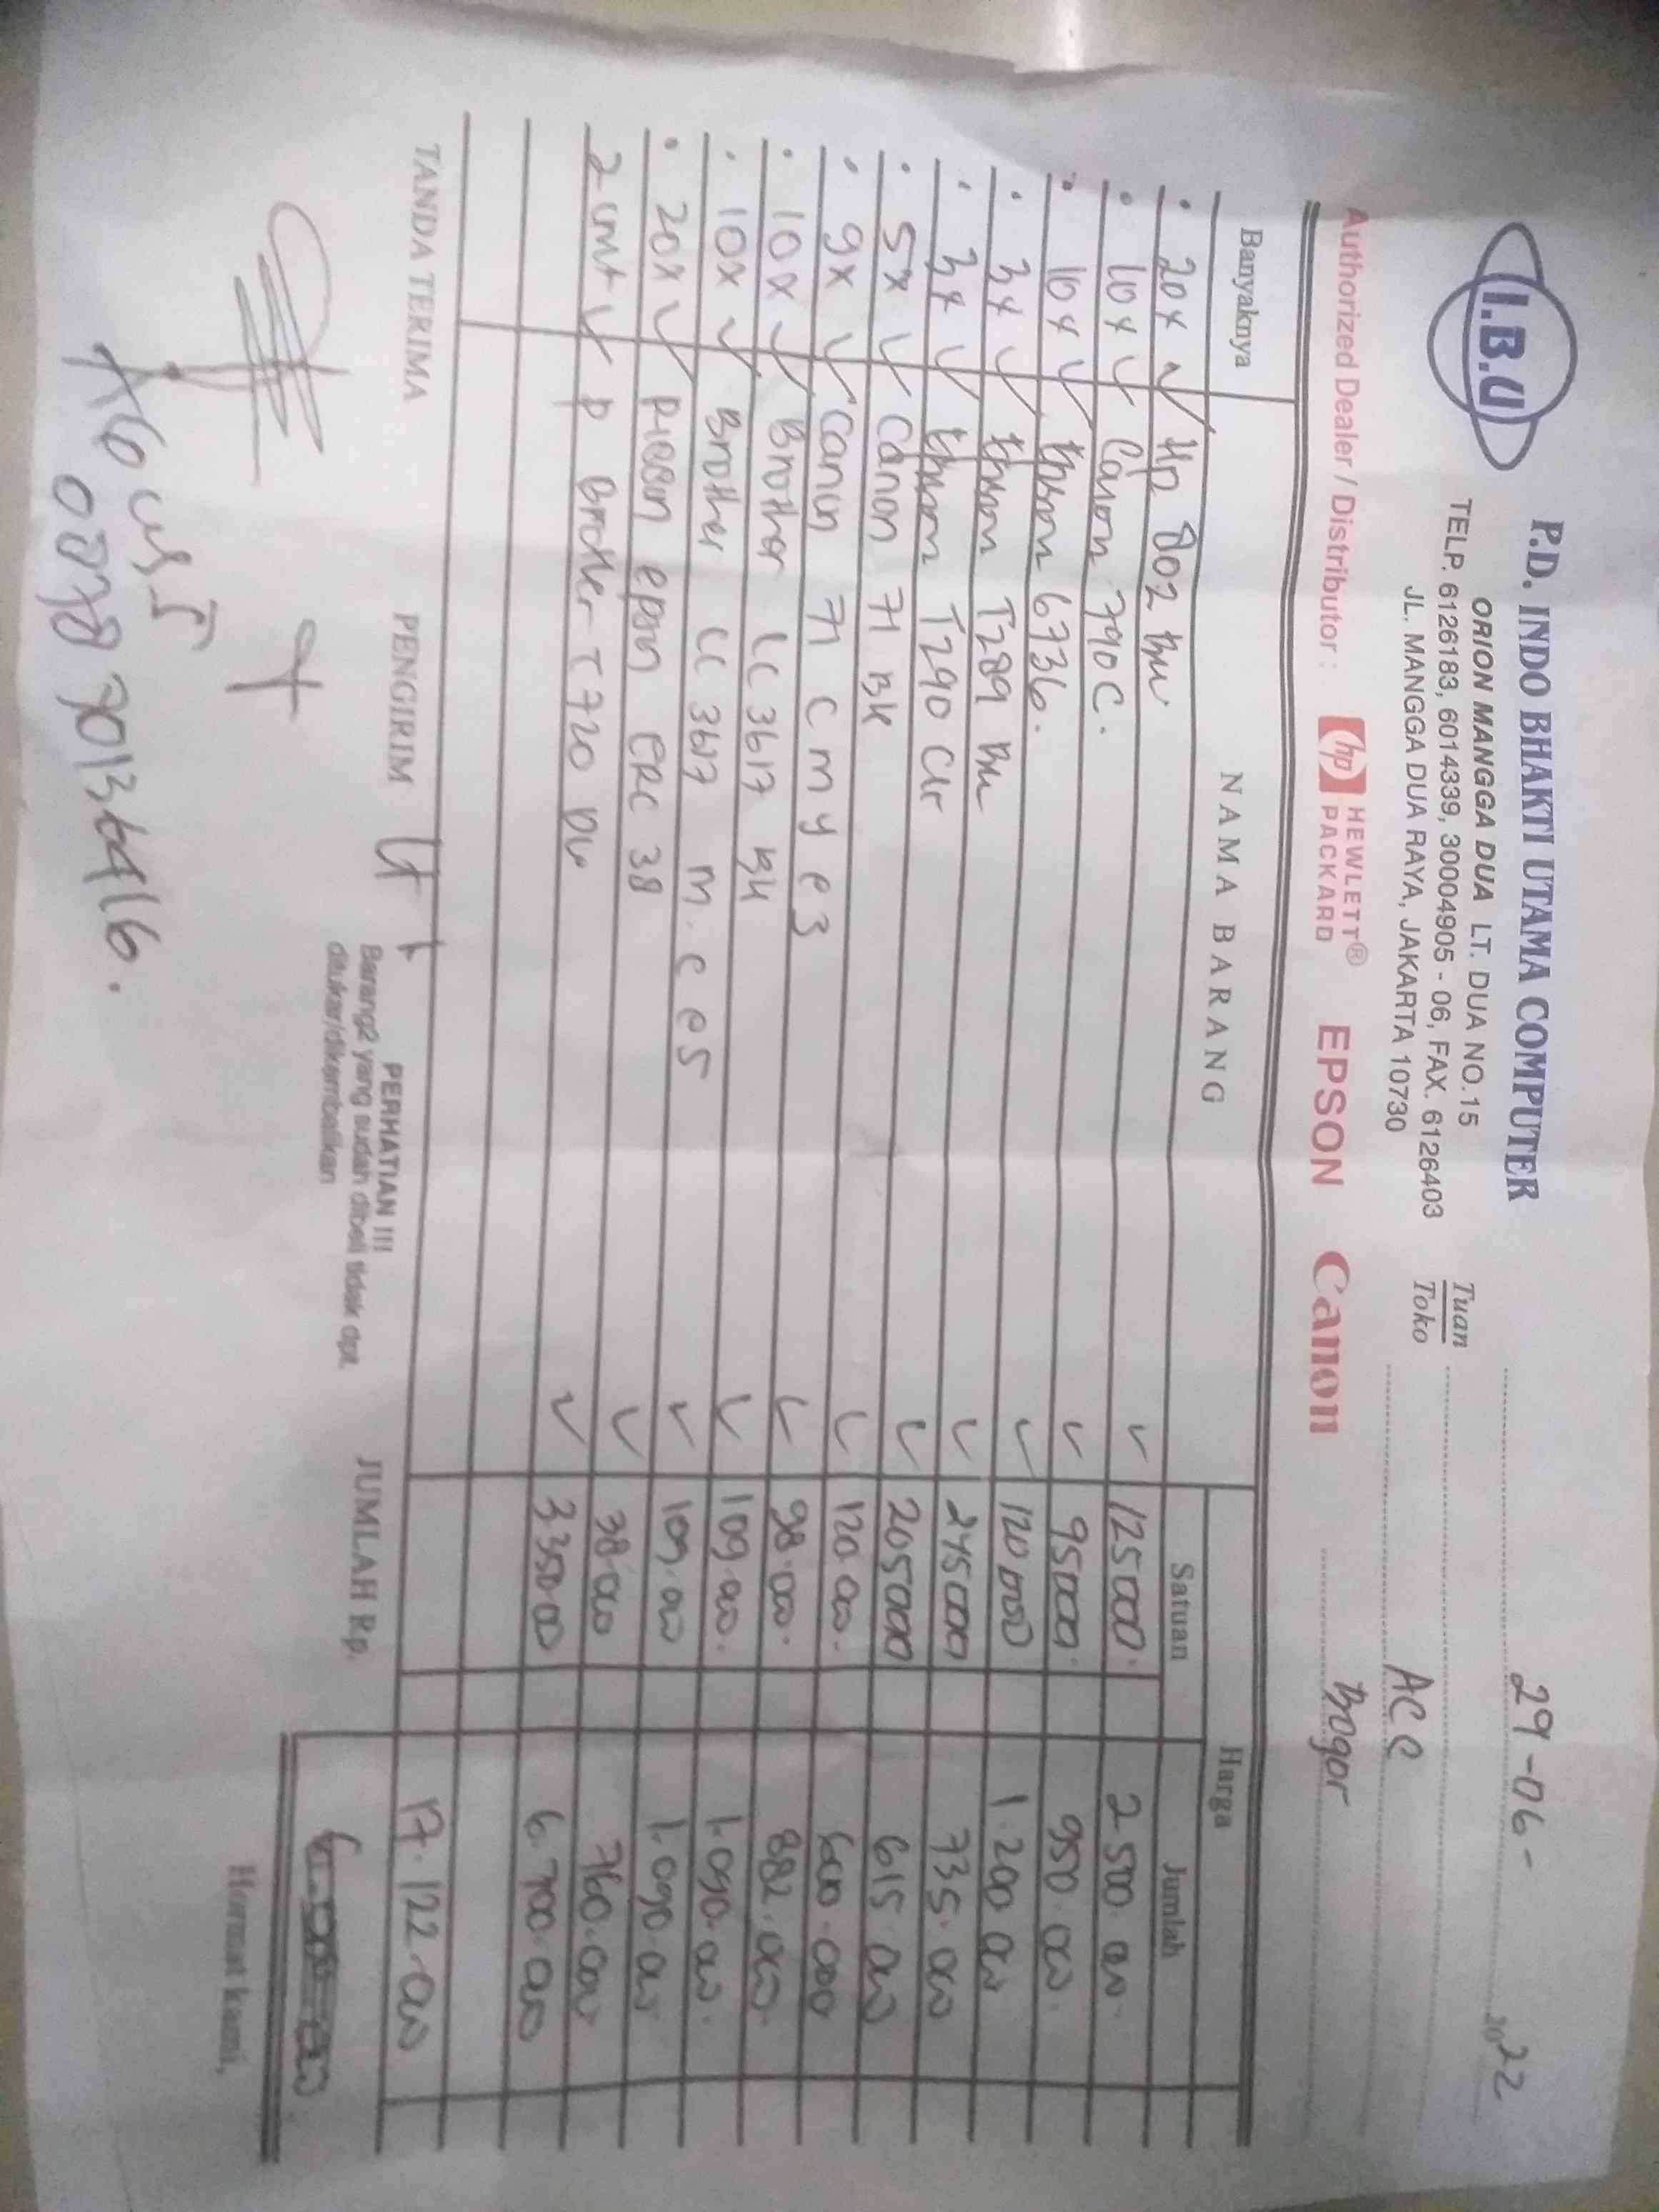 I.B.U
P.D. INDO BHAKTI UTAMA COMPUTER
ORION MANGGA DUA LT. DUA NO. 15
TELP. 6126183, 6014339, 30004905 - 06, FAX. 6126403
JL. MANGGA DUA RAYA, JAKARTA 10730
29-06- 2022
Tuan
Toko
ACC
Bogor
Authorized Dealer / Distributor : hp HEWLETT® PACKARD EPSON Canon
Banyaknya NAMA BARANG Harga
Satuan Jumlah
20x Hp 802 125000. 2 500.000.
10x Canon 790 C. 95000. 950.000.
10x 6736. 120000 1.200.000
3x T289 245000 735.000
3x T290 Clr 205000 615.000
5x Canon 71 BK 120.000. 600.000
9x Canon 71 c m y e3 98.000. 882.000.
10x Brother LC 3617 BK 109.000. 1.090.000.
10x Brother LC 3617 m. c e5 109.000 1.090.000
20x epson ERC 38 38.000 760.000
2 unt P Brother T720 DW 3.350.00 6.700.000
17.122.000
TANDA TERIMA PENGIRIM
PERHATIAN !!!
Barang2 yang sudah dibeli tidak dpt.
ditukar/dikembalikan
JUMLAH Rp.
Hormat kami,